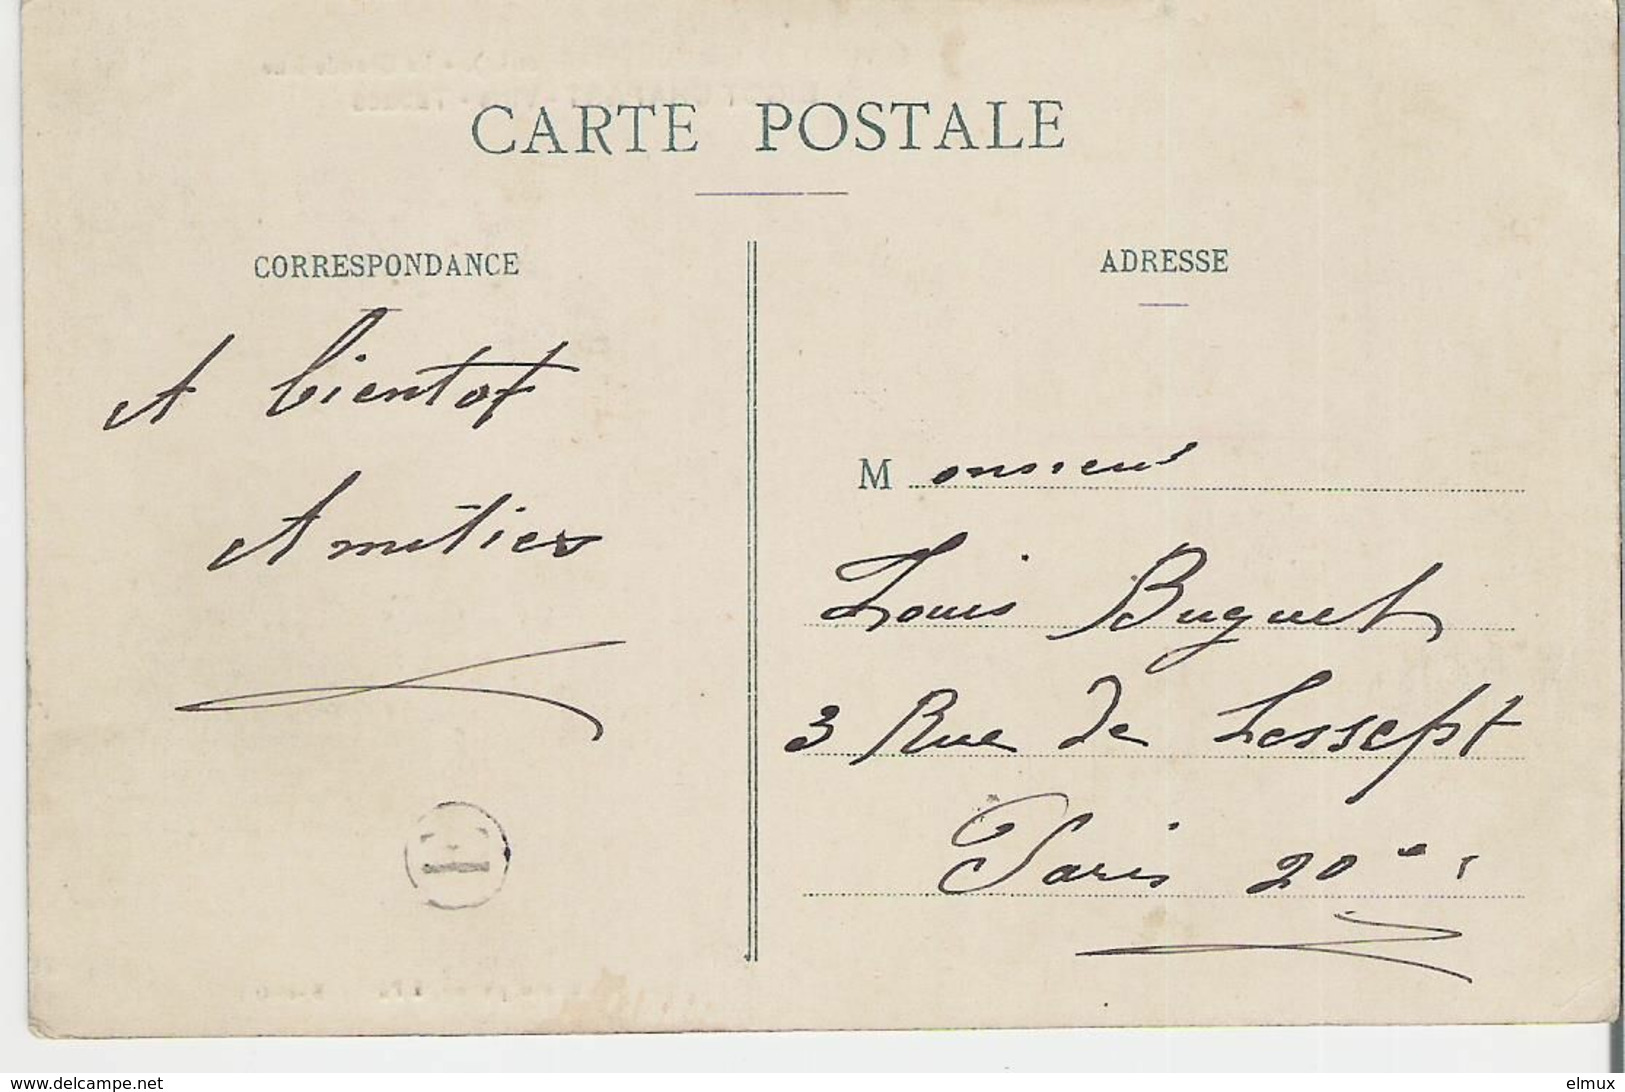 CARTE POSTALE
CORRESPONDANCE
A bientot
Amitiés
ADRESSE
Monsieur
Louis Buguet
3 Rue de Lessept
Paris 20e
www.delcampe.net
elmux